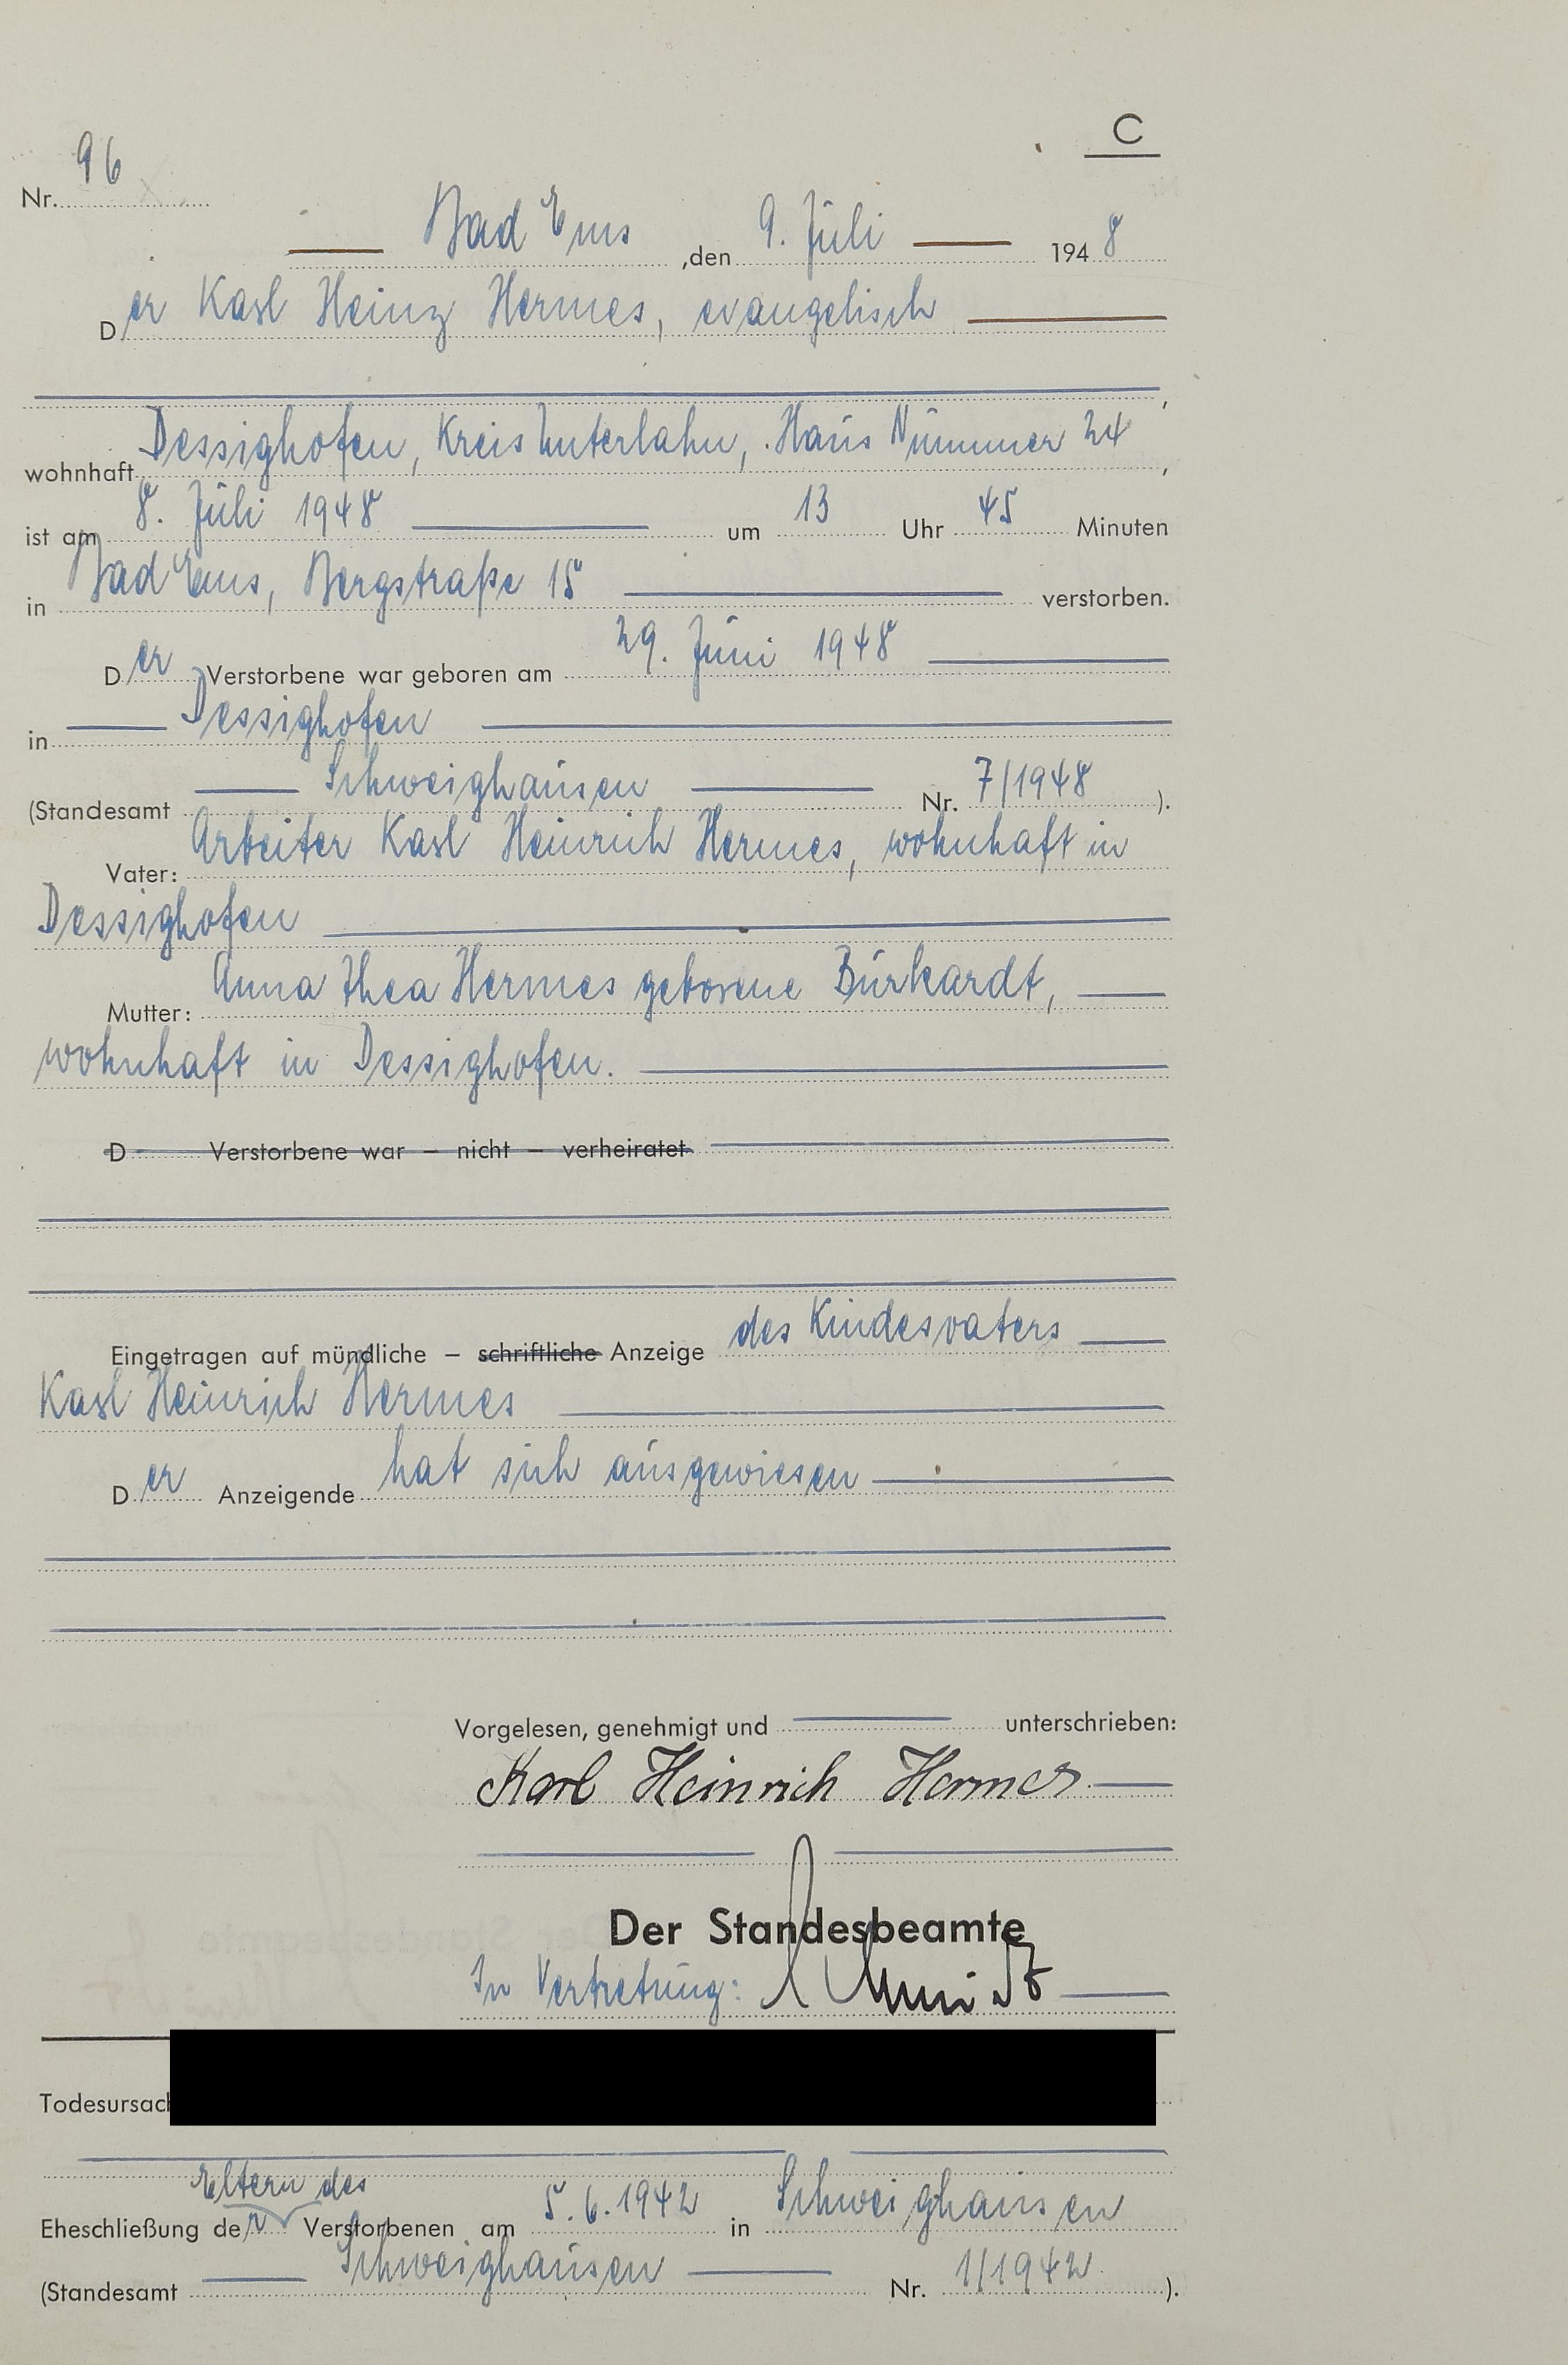 C
Nr. 96
Bad Ems, den 9. Juli 1948
Der Karl Heinz Hermes, evangelisch
,
wohnhaft Dessighofen, Kreis Unterlahn, Haus Nummer 24,
ist am 8. Juli 1948 um 13 Uhr 45 Minuten
in Bad Ems, Bergstraße 15 verstorben.
Der Verstorbene war geboren am 29. Juni 1948
in Dessighofen
(Standesamt Schweighausen Nr. 7/1948 ).
Vater: Arbeiter Karl Heinrich Hermes, wohnhaft in
Dessighofen
Mutter: Anna Thea Hermes geborene Burkardt,
wohnhaft in Dessighofen.
D Verstorbene war – nicht – verheiratet
Eingetragen auf mündliche – schriftliche Anzeige des Kindesvaters
Karl Heinrich Hermes
Der Anzeigende hat sich ausgewiesen
Vorgelesen, genehmigt und unterschrieben:
Karl Heinrich Hermes
Der Standesbeamte
In Vertretung:
Todesursach
Eltern des
Eheschließung der Verstorbenen am 5.6.1942 in Schweighausen
(Standesamt Schweighausen Nr. 1/1942 ).